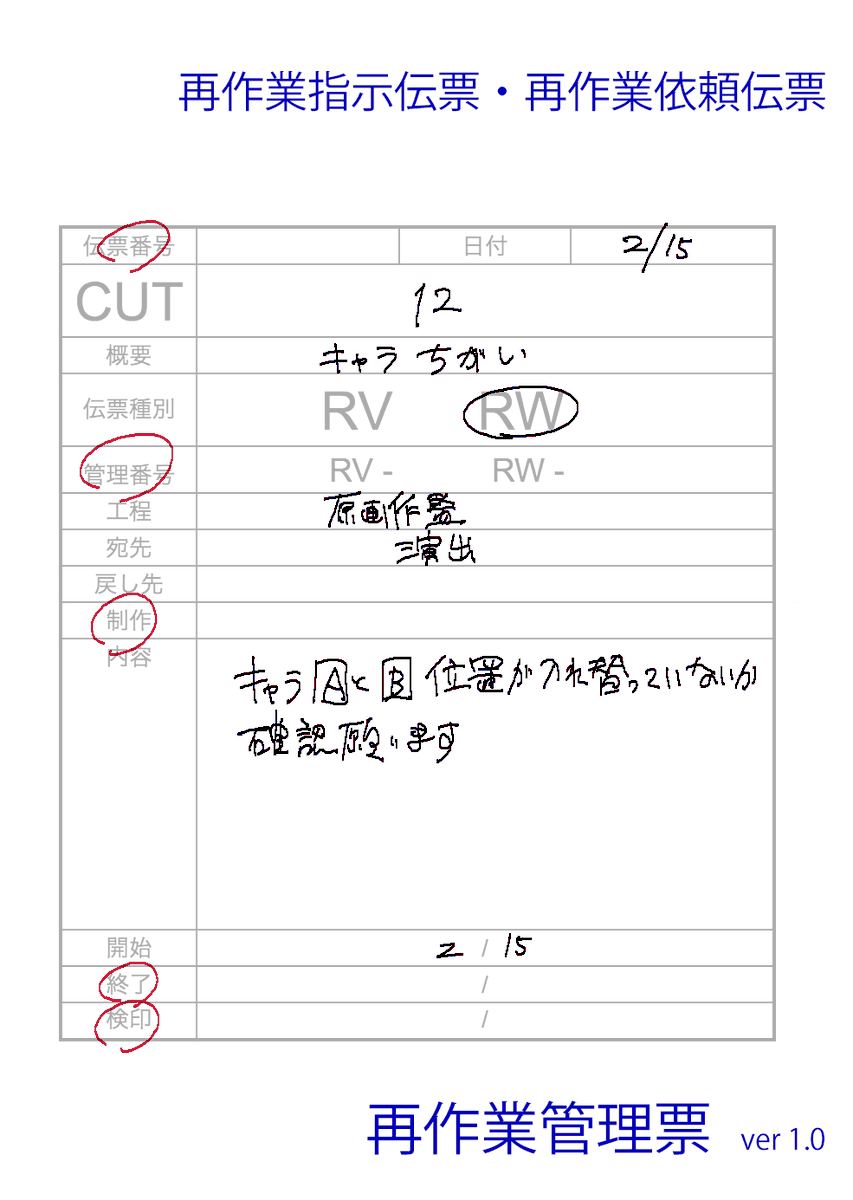 再作業指示伝票・再作業依頼伝票
伝票番号 日付 2/15
CUT 12
概要 キャラ ちがい
伝票種別 RV RW
管理番号 RV - RW -
工程 原画作監
宛先 演出
戻し先
制作
内容 キャラ A と B 位置が入れ替っていないか
確認願います
開始 2 / 15
終了 /
検印 /
再作業管理票 ver 1.0